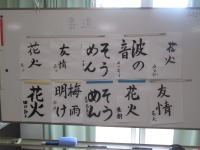 書道
花火
友情
そうめん
波の音
花火
花火
梅雨明け
そうめん
花火
友情